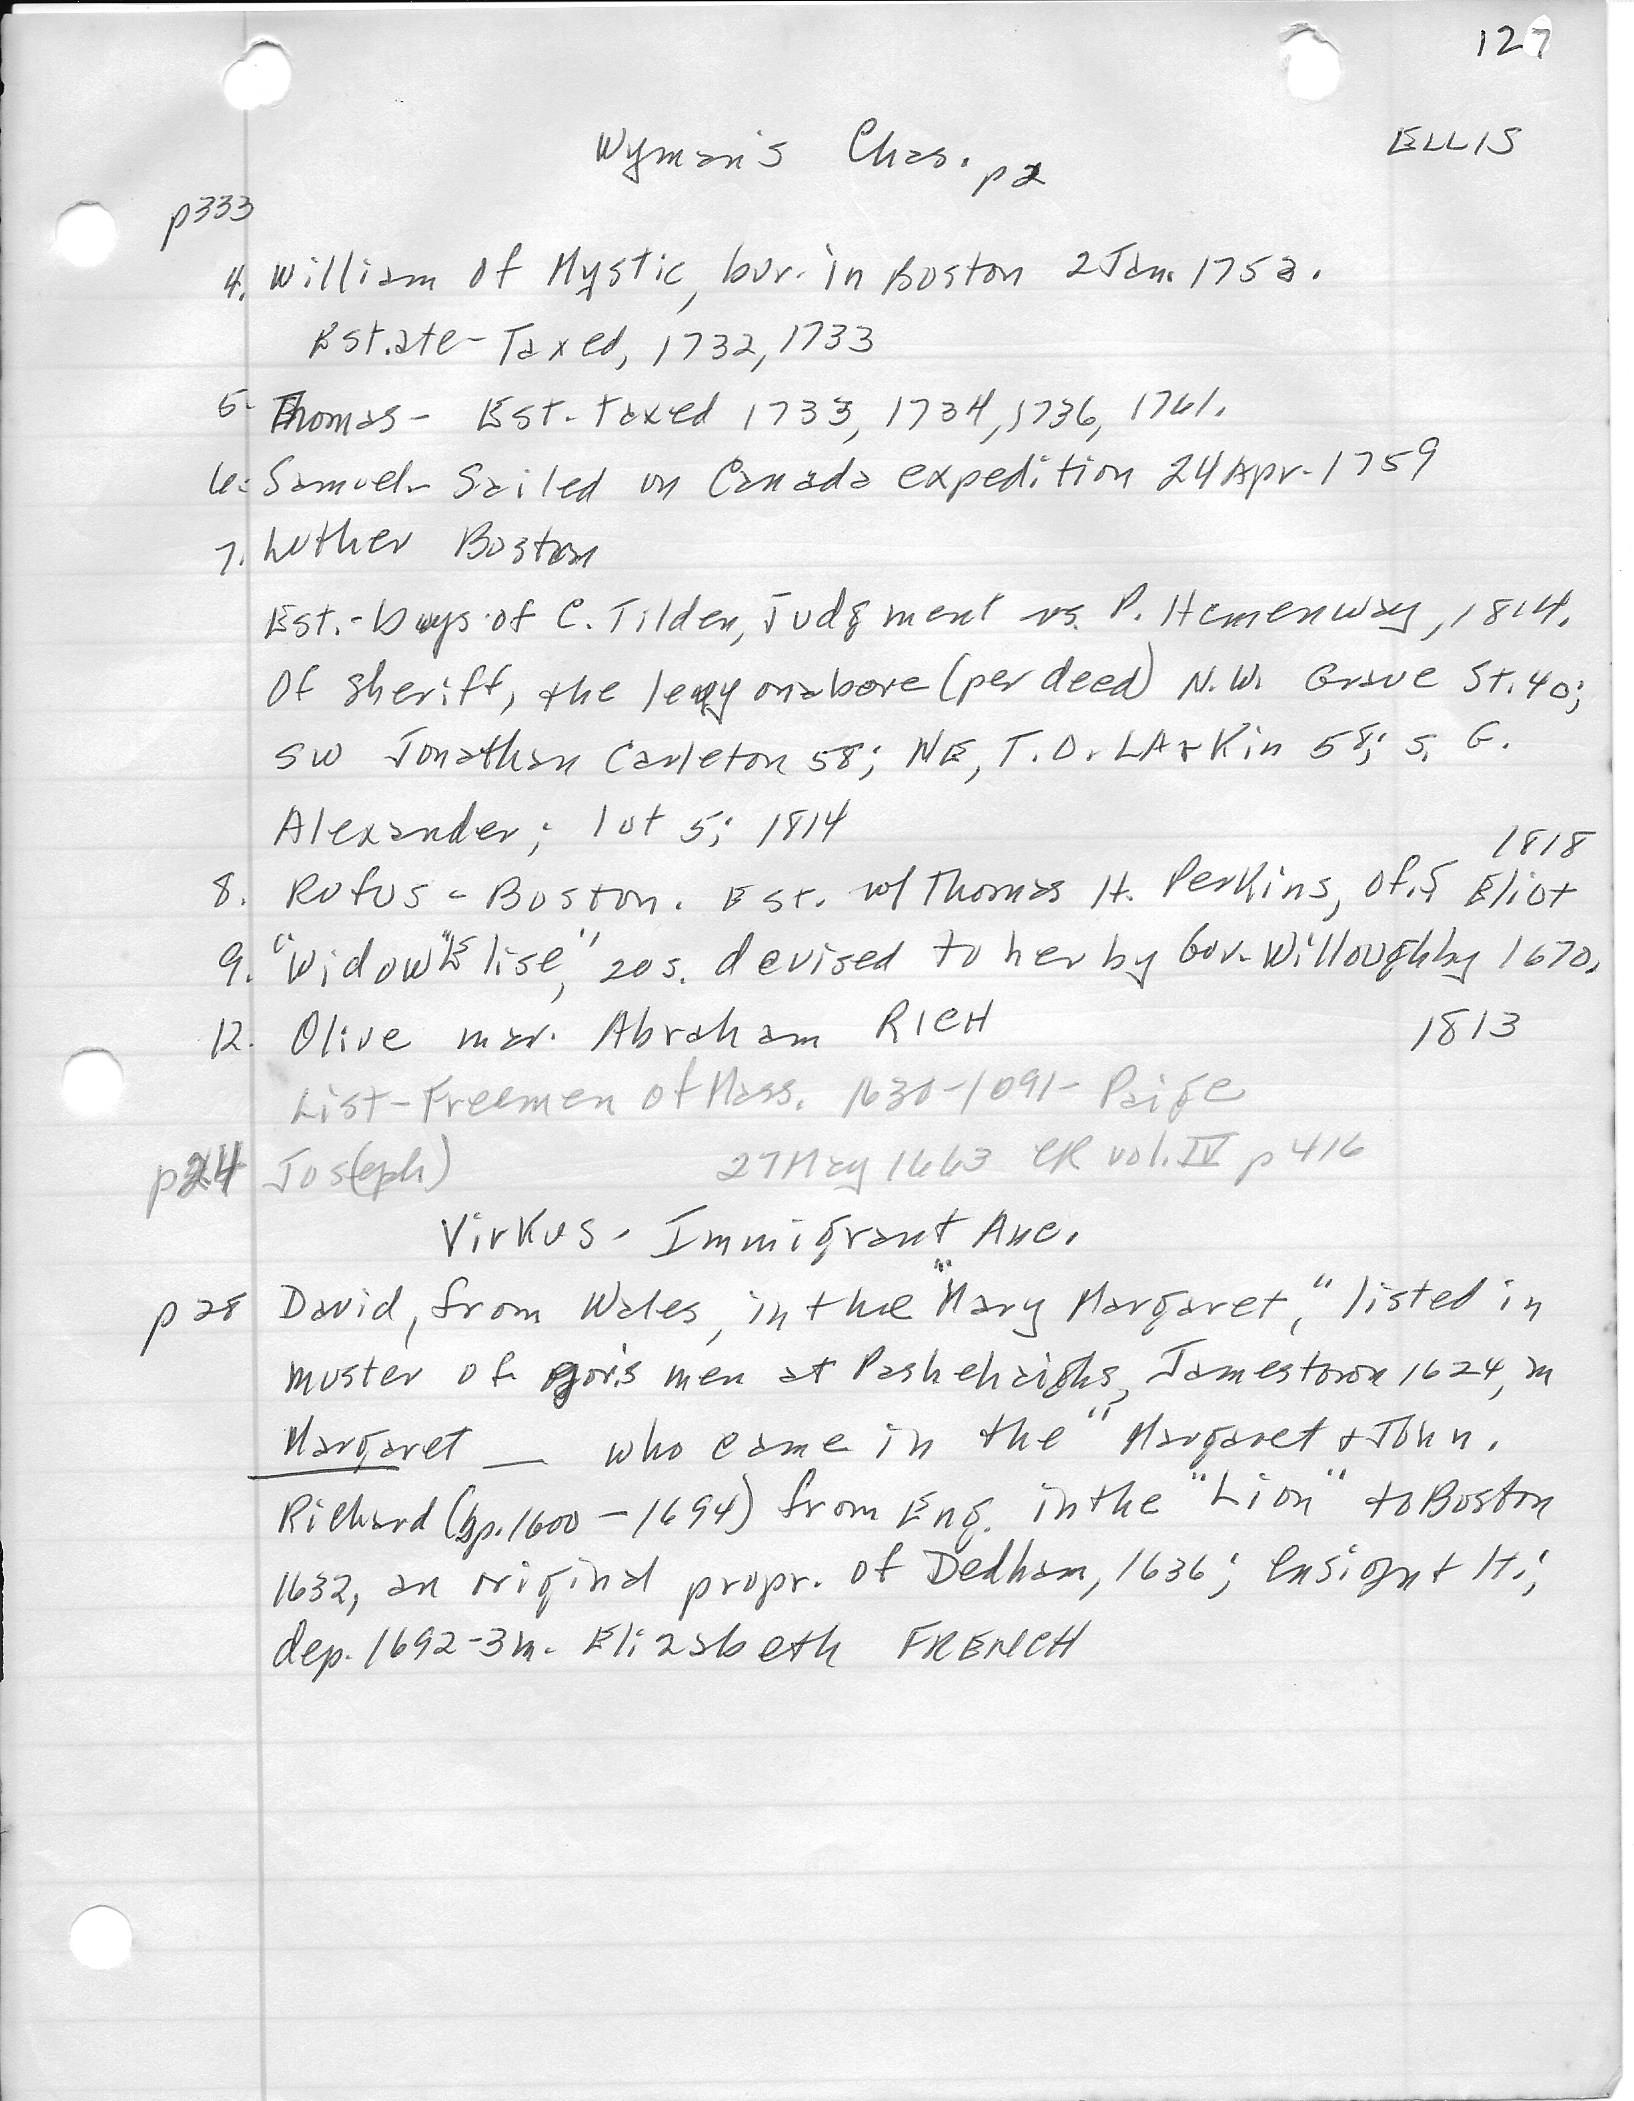 127
ELLIS
Wyman's Chas. p2
p333
4. William of Mystic, bur. in Boston 2 Jan. 1752.
Estate- Taxed, 1732, 1733
5. Thomas- Est. taxed 1733, 1734, 1736, 1761.
6. Samuel- Sailed on Canada expedition 24 Apr. 1759
7. Luther Boston
Est.- buys of C. Tilden, Judgment vs. P. Hemenway, 1814.
Of sheriff, the levy on above (per deed) N.W. Grave St. 40;
SW Jonathan Carleton 58; NE, T.O. LArKin 58; S. G.
Alexander; lot 5; 1814
8. Rufus - Boston. Est. w/ Thomas H. Perkins, of S Eliot 1818
9. "Widow "Elise," 20s. devised to her by Gov. Willoughby 1670.
12. Olive mar. Abraham RICH 1813
List-Freemen of Mass. 1630-1091- Paige
p24 Jos(eph) 27 May 1663 CR vol. IV p 416
Virkus - Immigrant Anc.
p28 David, from Wales, in the "Mary Margaret," listed in
muster of gov's men at Pashehaighs, Jamestown 1624, m
Margaret — who came in the "Margaret & John.
Richard (bp. 1600 - 1694) from Eng. in the "Lion" to Boston
1632, an original propr. of Dedham, 1636; Ensign +
dep. 1692-3 m. Elizabeth FRENCH